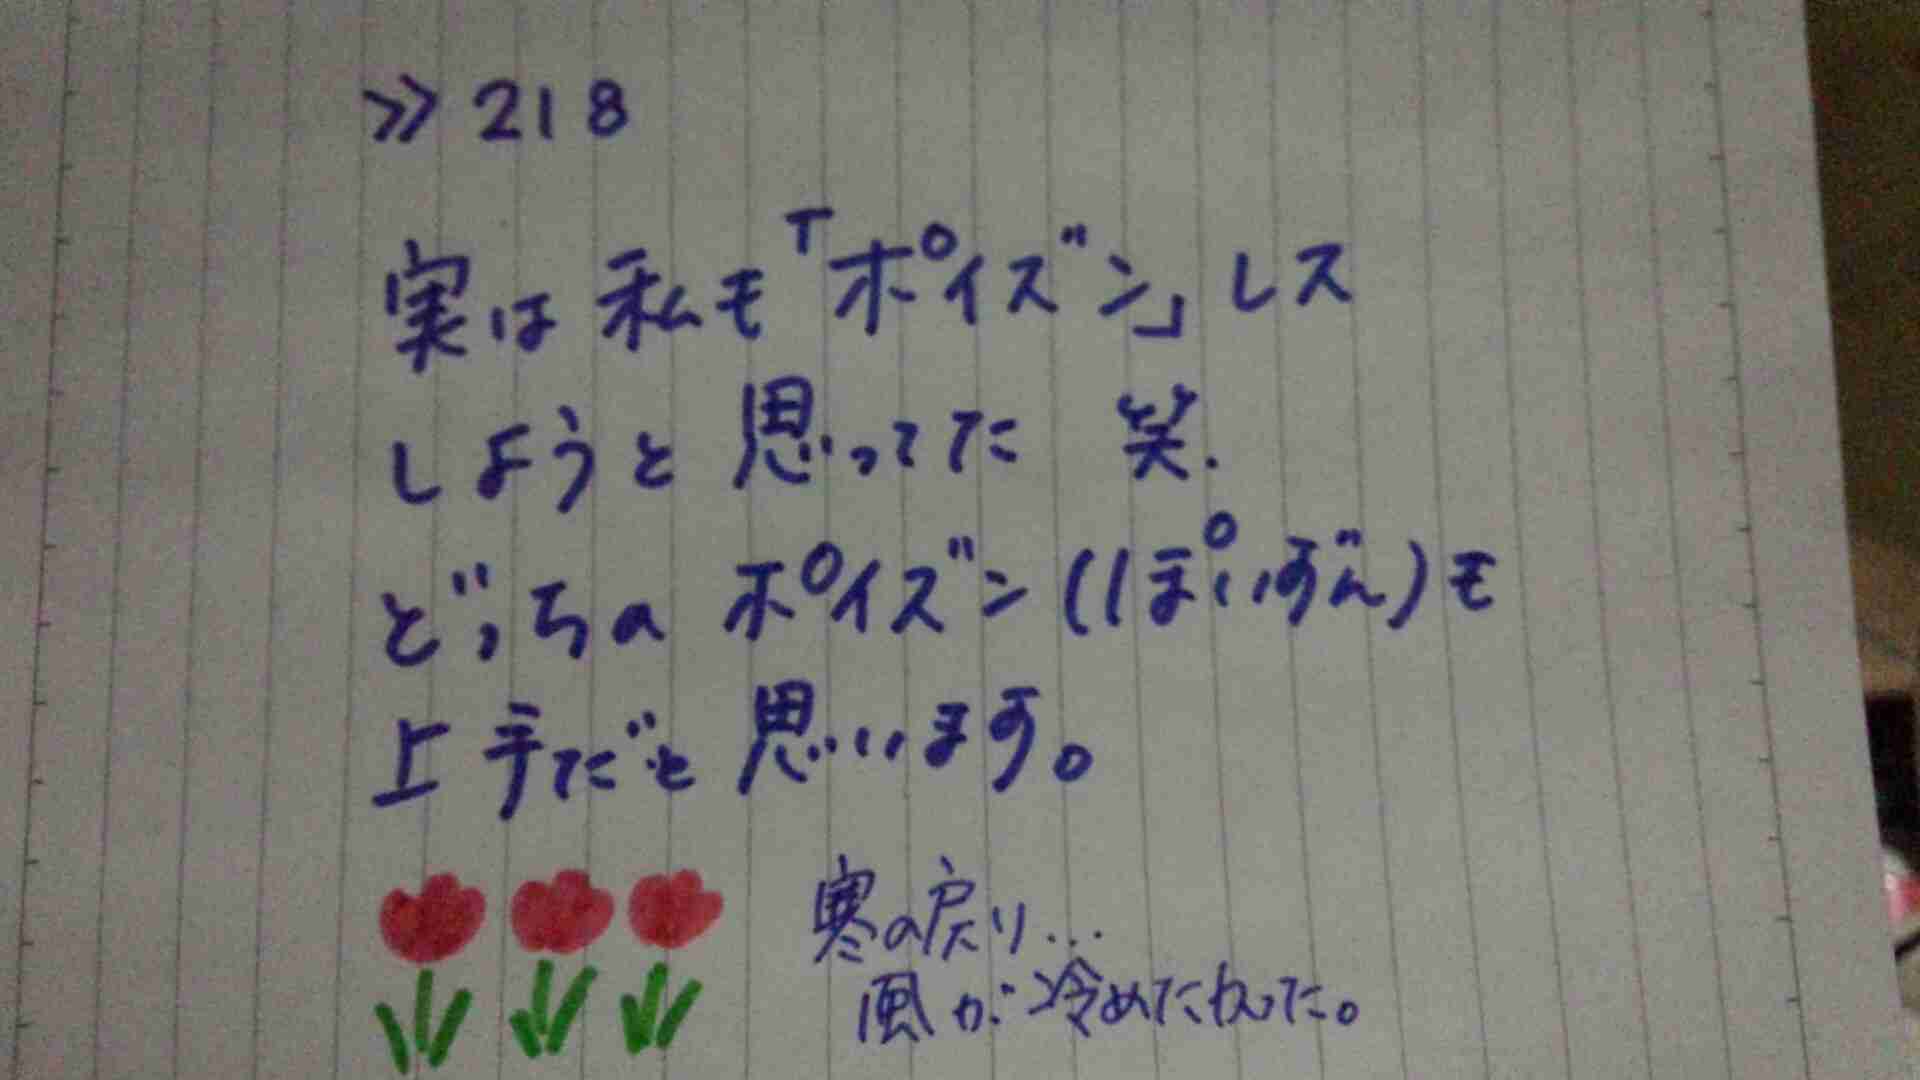 ≫218
実は私も「ポイズン」レス
しようと思ってた 笑.
どっちのポイズン(ぽいずん)も
上手だと思います。
寒の戻り...
風が冷めたかった。